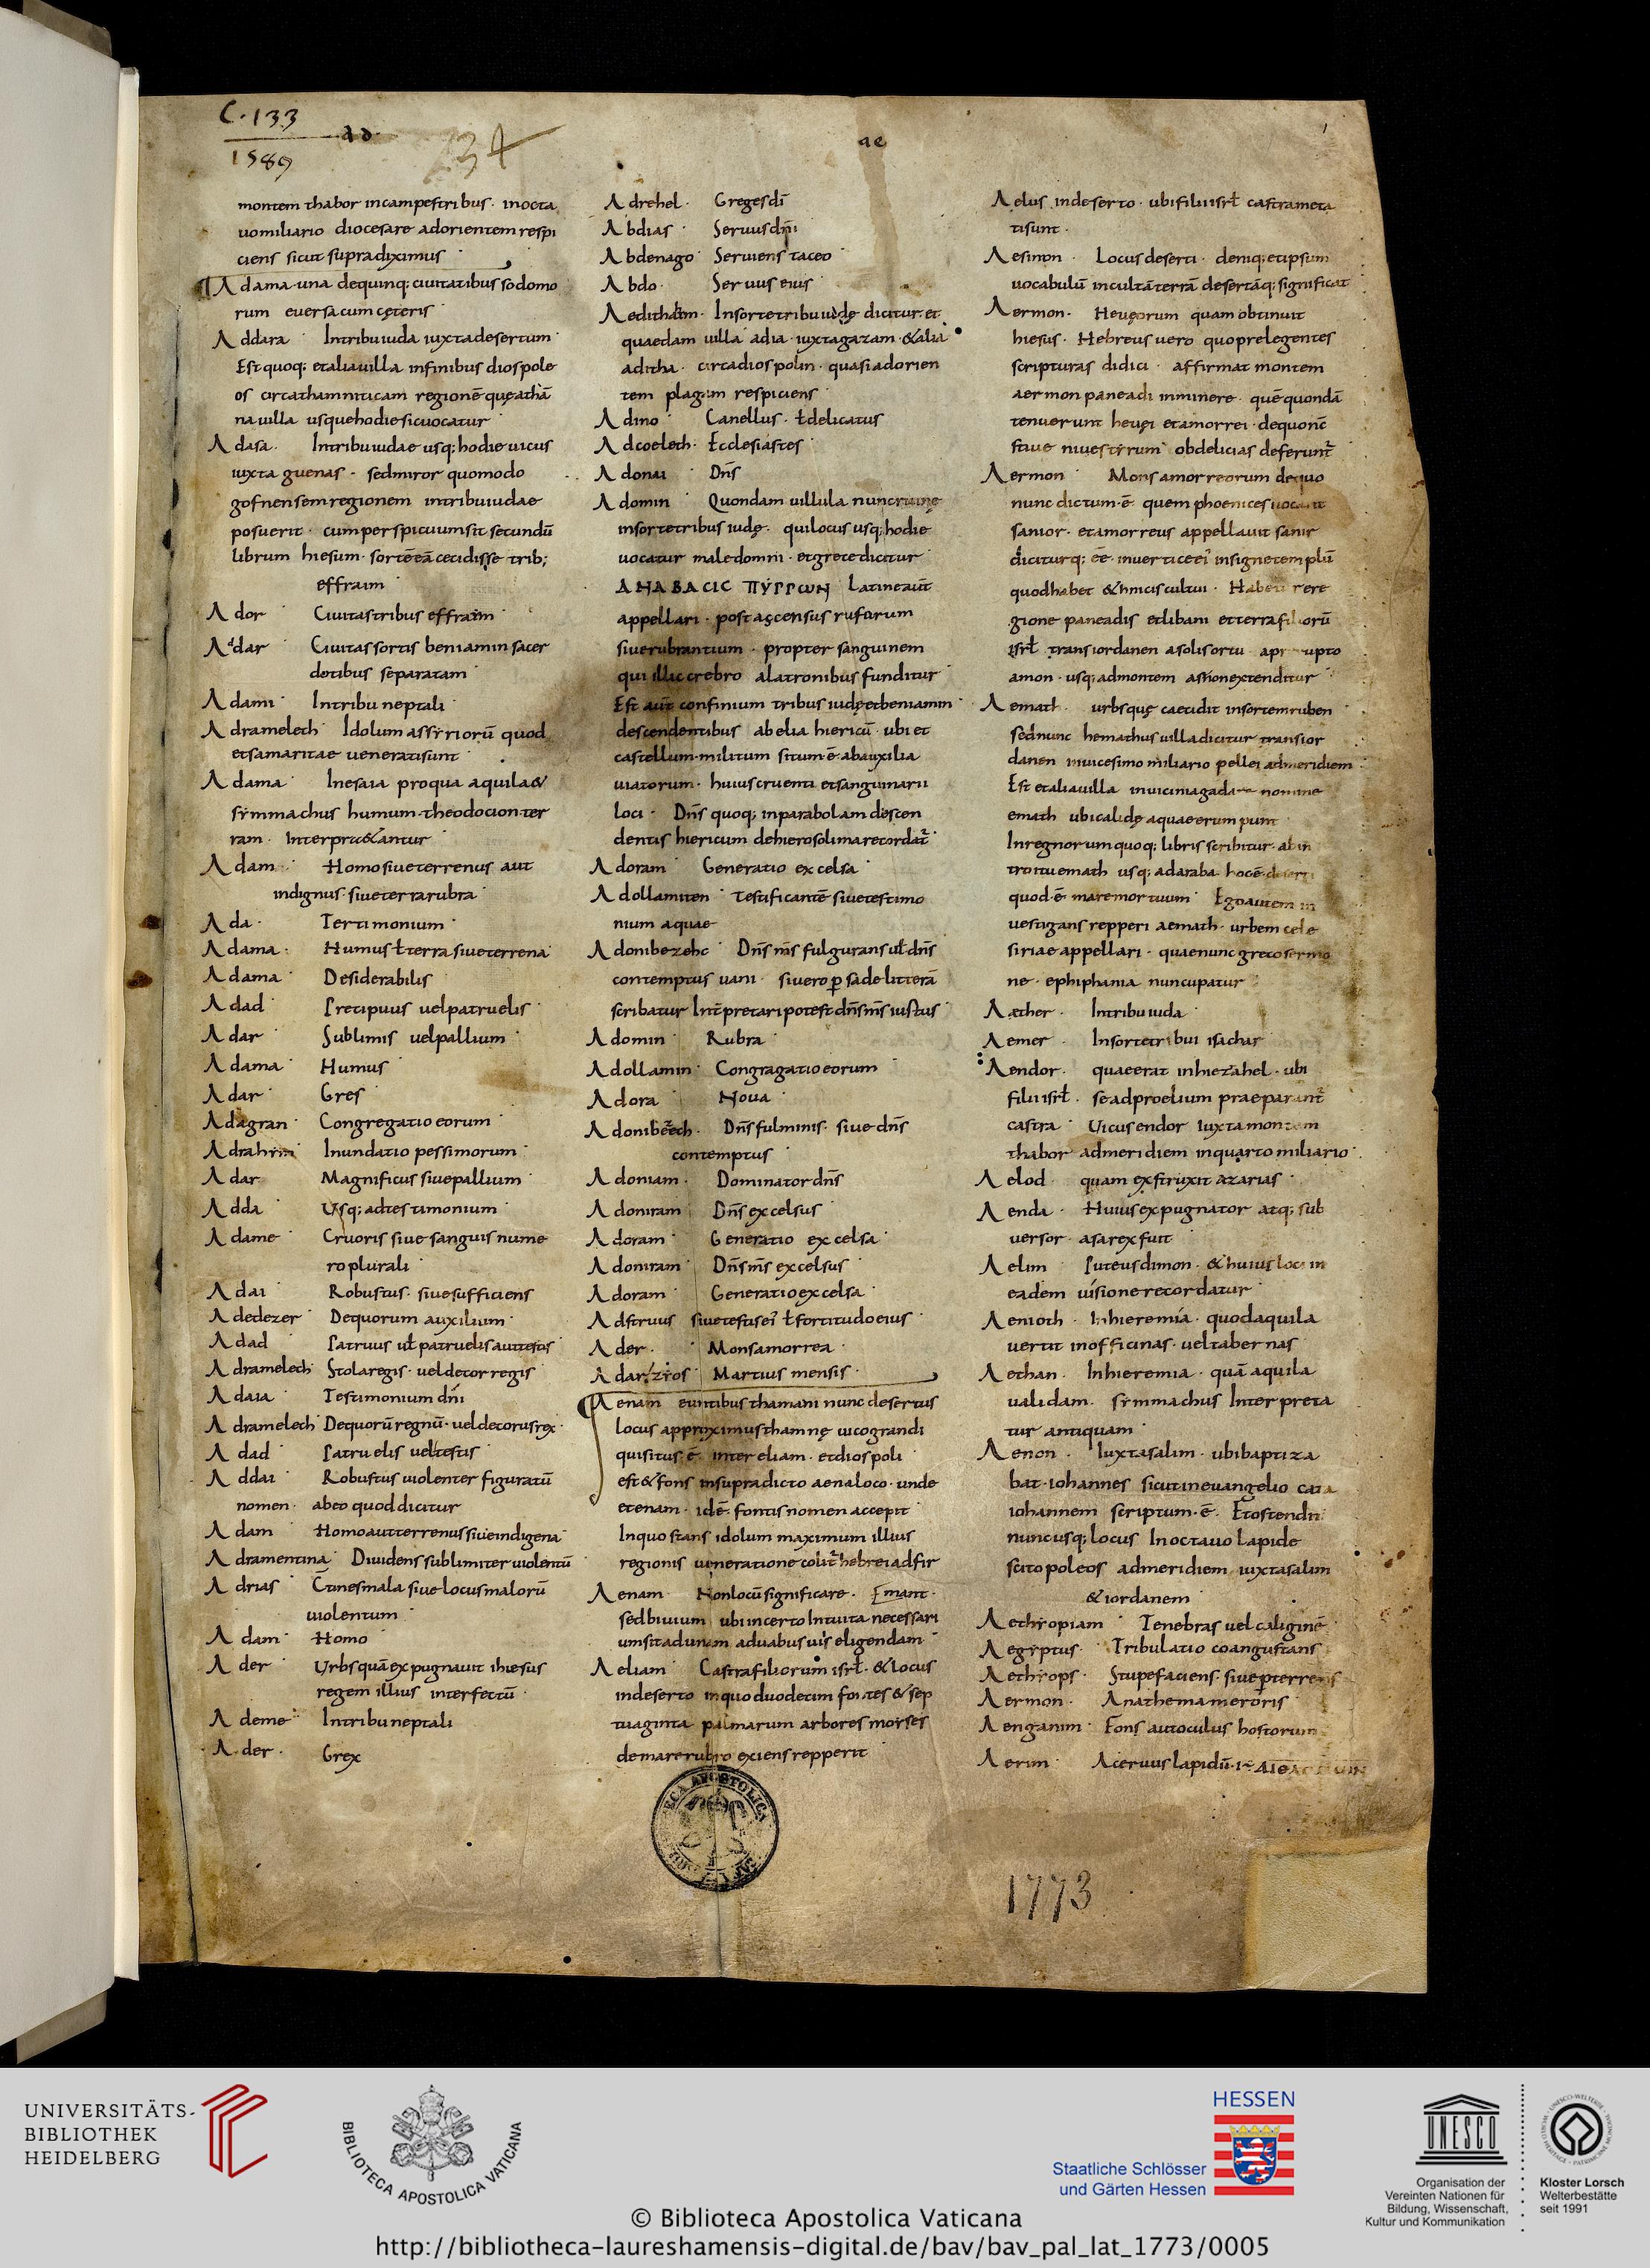 C. 133
1589
ad
34
ae
1
montem thabor incampestribus · inocta
uomiliario diocesare adorientem respi
ciens sicut supradiximus
Adama · una dequinq; ciuitatibus sodomo
rum euersacum cęteris
Addara · Intribuiuda iuxtadesertum
Est quoq; etaliauilla infinibus diospole
os circathamniticam regionē quęathā
nauilla usquehodiesicuocatur
Adasa · Intribuiudae usq; hodie uicus
iuxta guenas · sedmiror quomodo
gofnensemregionem intribuiudae
posuerit · cumperspicuumsit secundū
librum hiesum · sortēeācecidisse trib;
effraim
Ador Ciuitastribus effraim
Addar Ciuitassortis beniamin sacer
dotibus separatam
Adami · Intribu neptali
Adramelech Idolum assyriorū quod
etsamaritae ueneratisunt
Adama · Inesaia proqua aquila&
symmachus humum · theodocion · ter
ram · Interpr&antur
Adam · Homosiueterrenus aut
indignus · siueterrarubra
Ada · Testimonium
Adama · Humus ł terra siueterrena
Adama · Desiderabilis
Adad Precipuus uelpatruelis
Adar Sublimis uelpallium
Adama · Humus
Adar · Gres
Adagran · Congregatio eorum
Adrahim Inundatio pessimorum
Adar Magnificus siuepallium
Adda Usq; adtestimonium
Adame · Cruoris siue sanguis nume
roplurali
Adai Robustus · siuesufficiens
Adedezer Dequorum auxilium
Adad Patruus uł patruelis auttestis
Adramelech Stolaregis · ueldecor regis
Adaia Testimonium dn̄i
Adramelech Dequorūregnū · ueldecorusrex
Adad Patruelis ueltestis
Addai Robustus uiolenter figuratū
nomen · abeo quoddicitur
Adam Homoautterrenussiueindigena
Adramentina Diuidenssublimiter uiolentū
Adrias Ctinesmala siue locusmalorū
uiolentum
Adam Homo
Ader Urbsquāexpugnauit ihiesus
regem illius interfectū
Ademe Intribuneptali
Ader · Grex
Adrehel · Gregesdī
Abdias · Seruusdn̄i
Abdenago Seruienstaceo
Abdo · Seruus eius
Aeditham · Insortetribuiudę dicitur · et
quaedam uilla adia · iuxtagazam · &alia
aditha · circadiospolin · quasiadorien
tem plagam respiciens
Adino Canellus · ł delicatus
Adcoeleth · Ecclesiastes
Adonai Dn̄s
Adomin Quondam uillula nuncruinę
insortetribus iudę · quilocus usq; hodie
uocatur maledomni · etgrecedicitur
ΑΝΑΒΑCΙC ΠΥΡΡωΝ Latineaūt
appellari · postascensus ruforum
siuerubrantium · propter sanguinem
qui illic crebro alatronibus funditur
Est aūt confinium tribus iudęetbeniamin
descendentibus abelia hiericū · ubi et
castellum · militum situm · ē · abauxilia
uiatorum · huiuscruenti etsanguinarii
loci · Dn̄s quoq; inparabolam descen
dentis hiericum dehierosolimarecordat̄
Adoram Generatio excelsa
Adollamiten Testificantē · siuetestimo
nium aquae
Adonibezehc Dn̄s m̄s fulgurans uł dn̄s
contemptus uani · siuero p sade litterā
scribatur Intp̄retari potest dn̄s m̄s iustus
Adomin Rubra
Adollamin · Congragatioeorum
Adora Noua
Adonibezech · Dn̄sfulminis · siue dn̄s
contemptus
Adoniam · Dominator dn̄s
Adoniram Dn̄s excelsus
Adoram Generatio excelsa
Adoniram Dn̄s m̄s excelsus
Adoram Generatioexcelsa
Adstruus siuetestisei ł fortitudoeius
Ader · Monsamorrea
Martius mensis ·
Aenam euntibus thamani nunc desertus
locus approximusthamnę uicograndi
quisitus · ē · inter eliam · etdiospoli
est & fons insupradicto aenaloco · unde
etenam · idē · fontisnomen accepit
Inquo stans idolum maximum illius
regionis ueneratione colit̄ hebreiadfir
Aenam Nonlocūsignificare · Emant ·
sedbiuium ubiincerto Intuita necessari
umsitadunam aduabusuiis eligendam
Aeliam Castrafiliorum isrł · & locus
indeserto inquoduodecim fontes & sep
tuaginta palmarum arbores moises
demarerubro exiensrepperit
Aelus indeserto · ubifiliiisrł castrameta
tisunt ·
Aesimon Locusdeserti · deniq; etipsum
uocabulū incultāterrā desertāq; significat
Aermon · Heuęorum quam obtinuit
hiesus · Hebreus uero quoprelegentes
scripturas didici · affirmat montem
aermon paneadi inminere · quēquondā
tenuerunt heuęi etamorrei · dequonc̄
stiue niuestyrum obdelicias deferunt̄
Aermon Monsamorreorum dequo
nunc dictum · ē quem phoenices uocant
sanior · etamorreus appellauit sanir
diciturq; eē · inuerticeei insignetemplū
quodhabet &hniciscultui ·
gione paneadis etlibani etterrafiliorū
isrł transiordanen asolisortu
amon · usq; admontem assionextenditur
Aemath · urbsquę caecidit insortemruben
sednunc hemathusuilladicitur transior
danen inuicesimo miliario pellei admeridiem
Est etaliauilla inuiciniagadara nomine
emath ubicalidę aquaeerumpunt
Inregnorumquoq; libris scribitur · abin
troituemath usq; adaraba hocē · deserti
quod · ē · maremortuum Egoautem in
uestigans repperi aemath · urbem cęle
siriae appellari · quaenunc grecosermo
ne · ephiphania nuncupatur
Aether · Intribuiuda
Aemer · Insortetribui isachar
Aendor · quaeerat inhiezahel · ubi
filiiisrł · seadproelium praeparant̄
castra Uicusendor Iuxtamontem
thabor admeridiem inquarto miliario
Aelod · quam exstruxit azarias
Aenda · Huiusexpugnator atq; sub
uersor · asarexfuit
Aelim Puteusdimon · & huiusloci in
eadem uisionerecordatur
Aenioth · Inhieremia · quodaquila
uertit inofficinas · ueltabernas
Aethan · Inhieremia · quā aquila
ualidam · symmachus Interpreta
tur antiquam
Aenon · Iuxtasalim · ubibaptiza
bat · iohannes sicutineuangelio cata
iohannem scriptum · ē · Etostendit
nuncusq; locus Inoctauo lapide
scitopoleos admeridiem iuxtasalim
&iordanem
Aethyopiam Tenebras uel caliginē
Aegyptus · Tribulatio coangustans
Aethyops · Stupefaciens · siueperrens
Aermon · Anathemameroris
Aengannim · Fons autoculus hostorum
Aerim Aceruuslapidū ·
BIBLIOTECA APOSTOLICA VATICANA
1773
UNIVERSITÄTS-
BIBLIOTHEK
HEIDELBERG
BIBLIOTECA APOSTOLICA VATICANA
HESSEN
Staatliche Schlösser
und Gärten Hessen
UNESCO
Organisation der
Vereinten Nationen für
Bildung, Wissenschaft,
Kultur und Kommunikation
Kloster Lorsch
Welterbestätte
seit 1991
© Biblioteca Apostolica Vaticana
http://bibliotheca-laureshamensis-digital.de/bav/bav_pal_lat_1773/0005